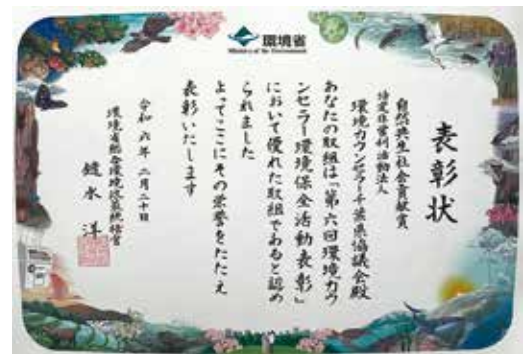 環境省
Ministry of the Environment
表彰状
自然共生社会貢献賞
特定非営利活動法人
環境カウンセラー千葉県協議会殿
あなたの取組は「第六回環境カウ
ンセラー環境保全活動表彰」
において優れた取組であると認め
られました
よってここにその栄誉をたたえ
表彰いたします
令和六年二月二十日
環境省総合環境政策統括官
鑓水洋